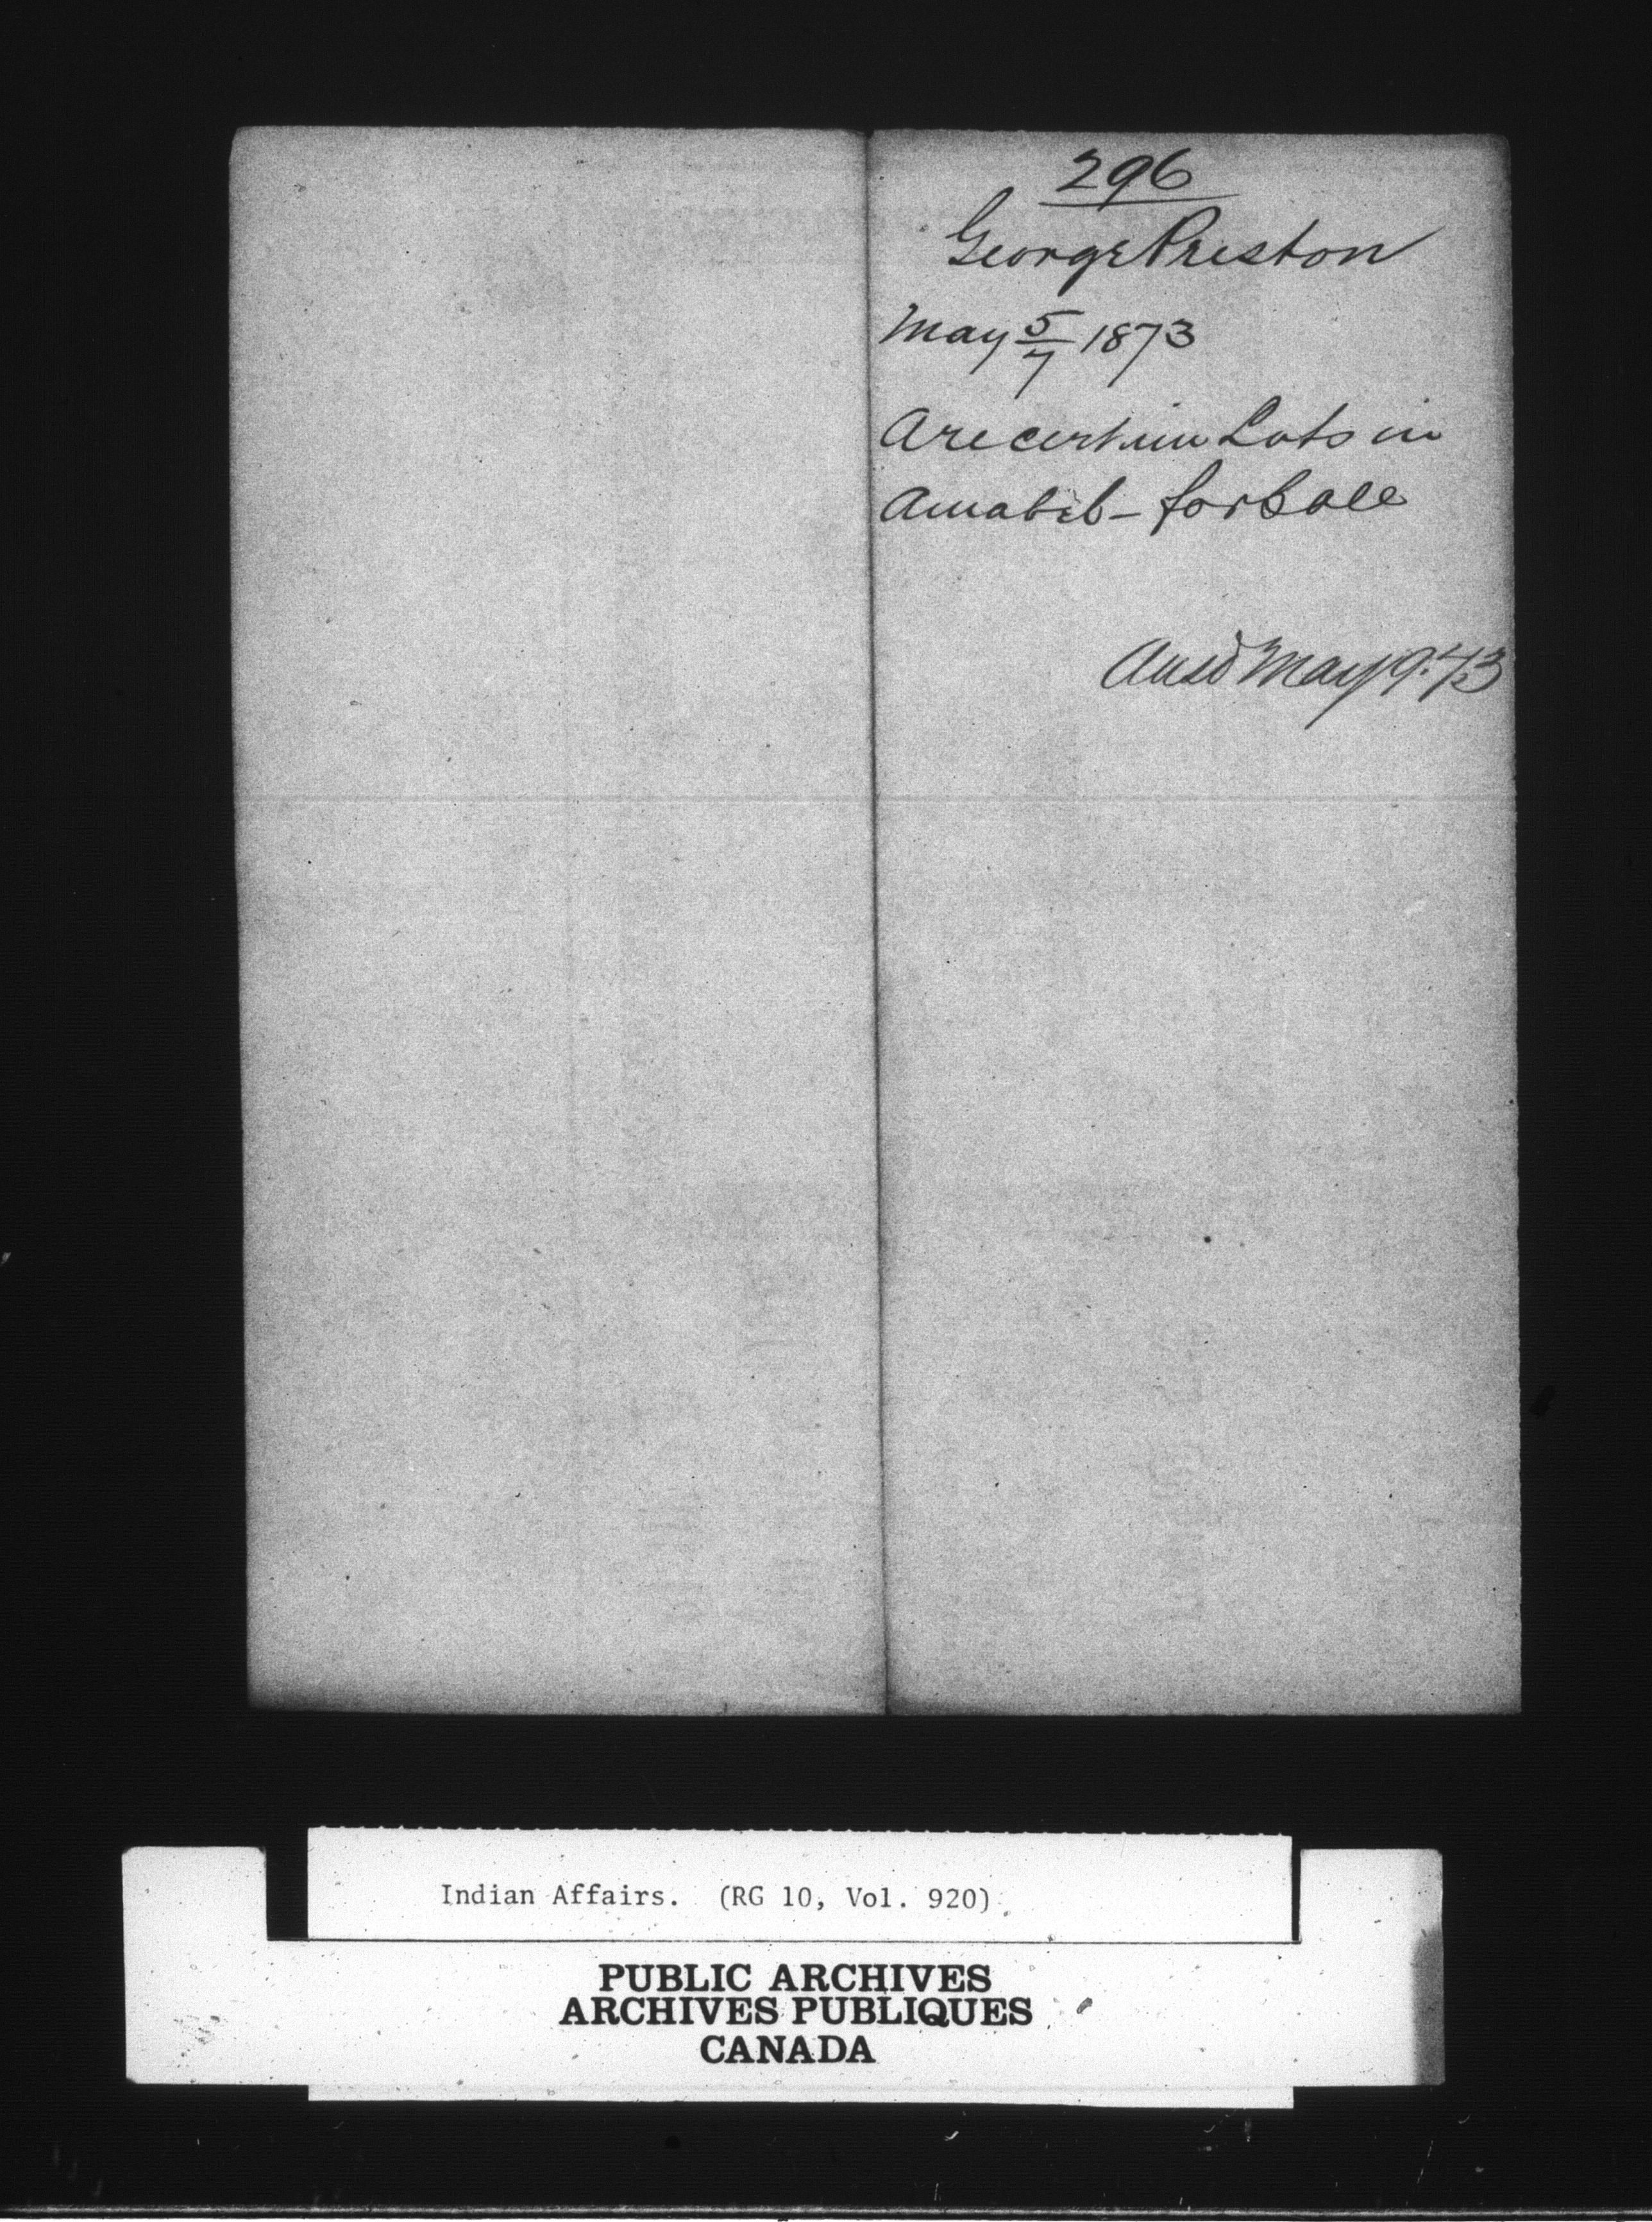 296
George Preston
May 5/7 1873
Are certain Lots in
Amabel - for Sale
Ansd May 9. 73
Indian Affairs. (RG 10, Vol. 920)
PUBLIC ARCHIVES
ARCHIVES PUBLIQUES
CANADA